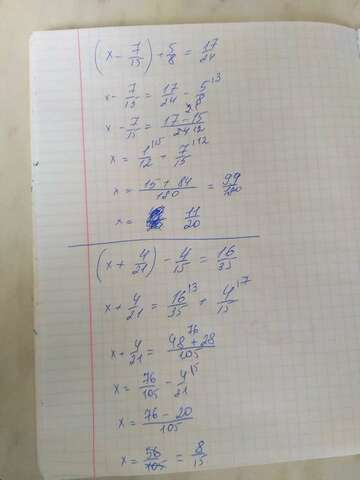 (x - 7/15) + 5/8 = 17/24
x - 7/15 = 17/24 - 5/8 ^3
x - 7/15 = 17-15/24 = 2/24 12
x = 1/12 ^15 + 7/15 ^12
x = 15 + 84/180 = 99/180
x = 11/20
(x + 4/21) - 4/15 = 16/35
x + 4/21 = 16/35 ^3 + 4/15 ^7
x + 4/21 = 48 + 28/105 76
x = 76/105 - 4/21 ^5
x = 76 - 20/105
x = 56/105 = 8/15